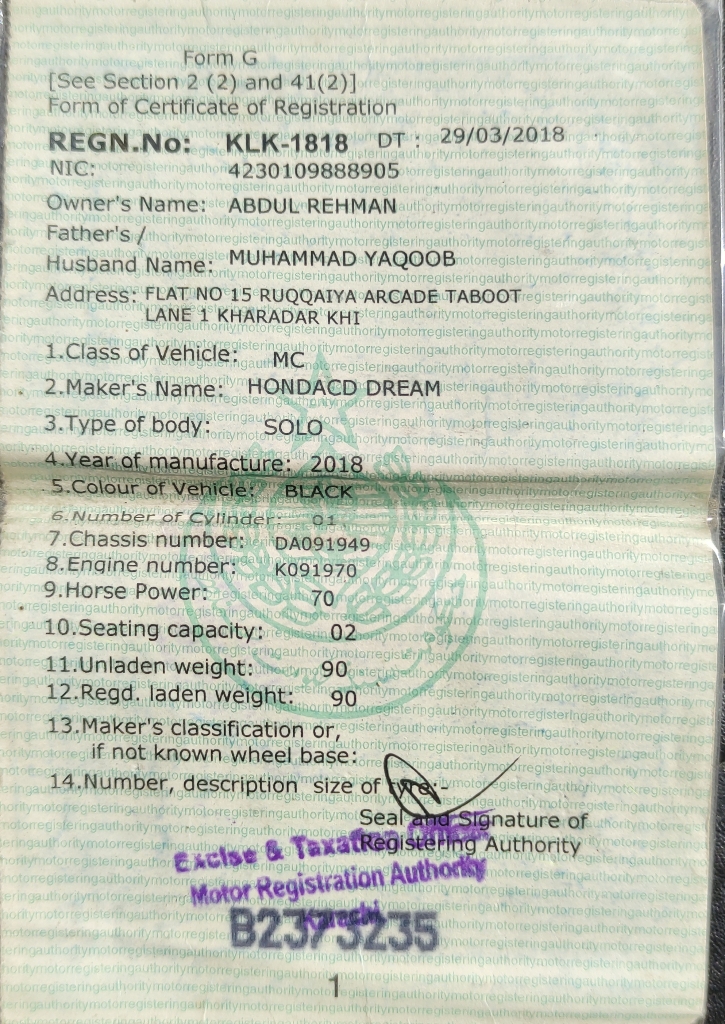 Form G
[See Section 2 (2) and 41(2)]
Form of Certificate of Registration
REGN.No: KLK-1818 DT : 29/03/2018
NIC: 4230109888905
Owner's Name: ABDUL REHMAN
Father's /
Husband Name: MUHAMMAD YAQOOB
Address: FLAT NO 15 RUQQAIYA ARCADE TABOOT
LANE 1 KHARADAR KHI
1.Class of Vehicle: MC
2.Maker's Name: HONDACD DREAM
3.Type of body: SOLO
4.Year of manufacture: 2018
5.Colour of Vehicle: BLACK
6.Number of Cylinder: 01
7.Chassis number: DA091949
8.Engine number: K091970
9.Horse Power: 70
10.Seating capacity: 02
11.Unladen weight: 90
12.Regd. laden weight: 90
13.Maker's classification or,
if not known wheel base:
14.Number, description size of tyre:-
Seal and Signature of
Registering Authority
Excise & Taxation
Motor Registration Authority
Karachi
B2373235
1